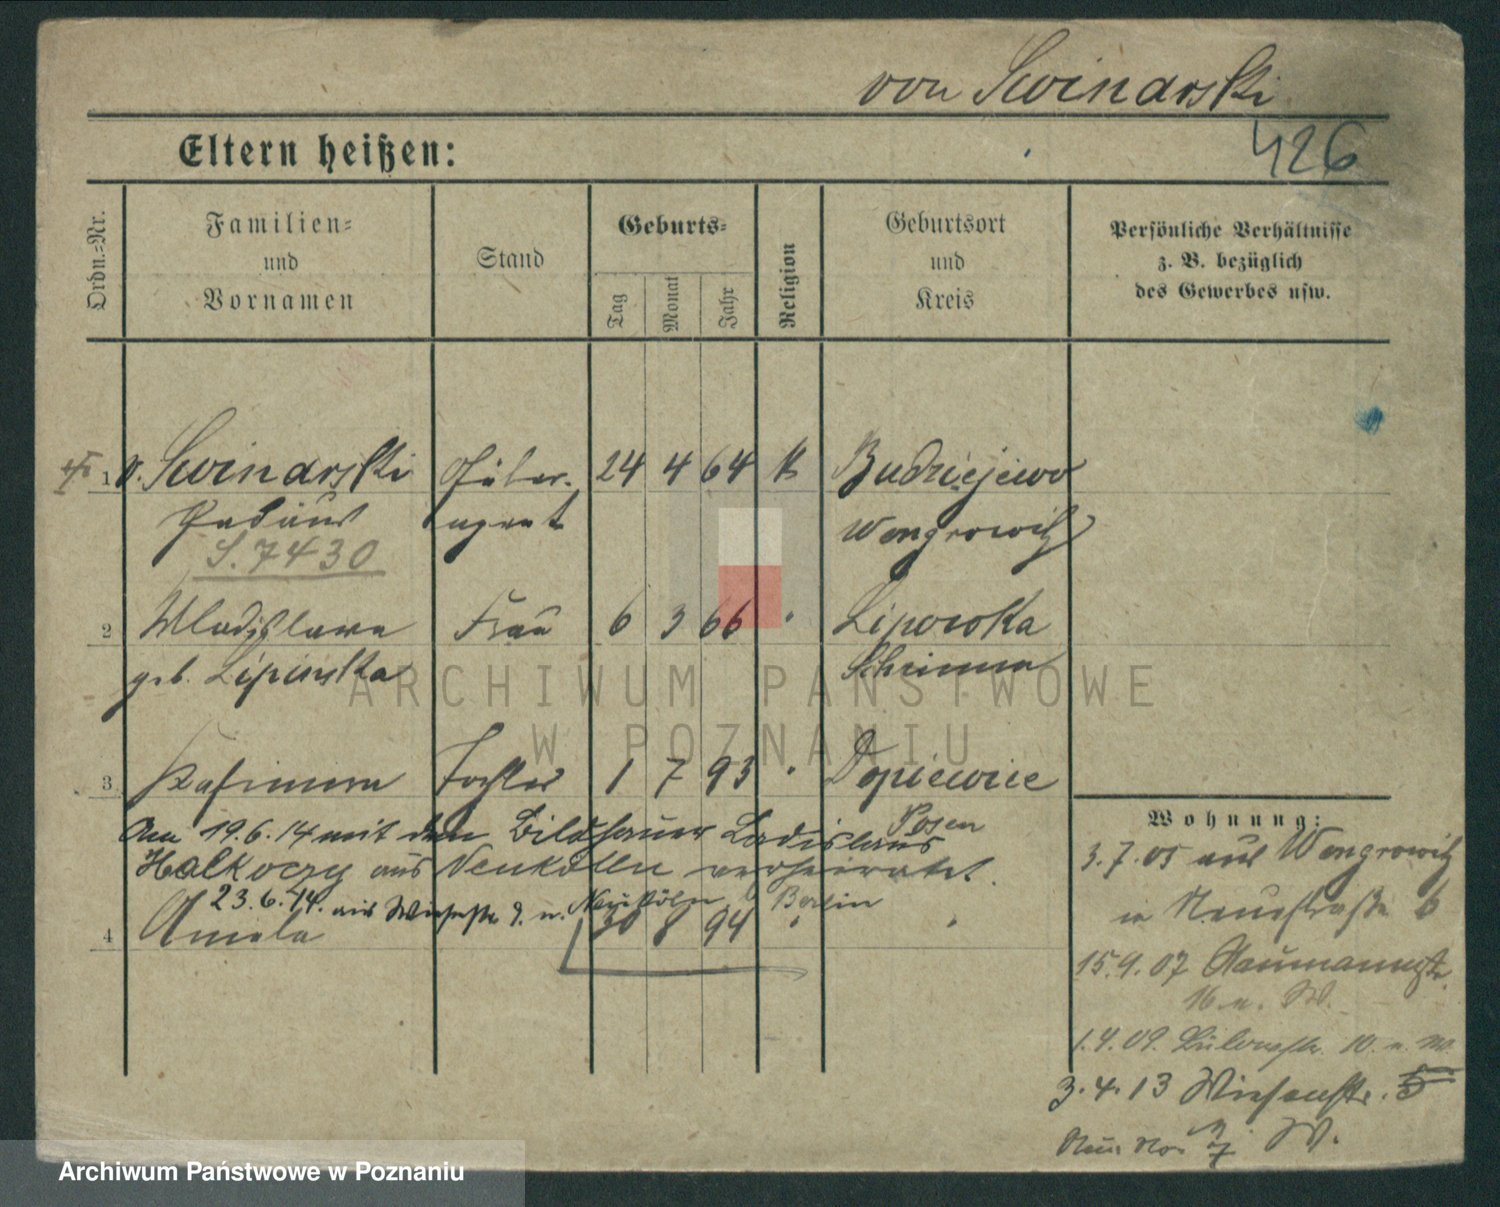 von Swinarski
426
Eltern heißen:
Ordn.-Nr.
Familien-
und
Vornamen
Stand
Geburts-
Tag
Monat
Jahr
Religion
Geburtsort
und
Kreis
Persönliche Verhältnisse
z. B. bezüglich
des Gewerbes usw.
1 v. Swinarski Güter- 24 4 64 k Budziejewo
agent Wongrowitz
S. 7430
2 Wladislawa Frau 6 3 66 " Lipowka
geb. Lipinska Schrimm
3 Kasimira Tochter 1 7 93 " Dopiewice
Posen
Am 19.6.14 mit dem Bildhauer Ladislaus
Halkoczy aus Neukölln verheiratet.
23.6.14. nach Neukölln Berlin
4 Aniela 30 8 94 " "
Wohnung:
3.7.05 aus Wongrowitz
in Neuestraße 6
15.9.07 Naumannstr.
16 n. W.
1.4.09. Bülowstr. 10. n. W.
3.4.13 Wiesenstr. 5
W.
ARCHIWUM PAŃSTWOWE
W POZNANIU
Archiwum Państwowe w Poznaniu